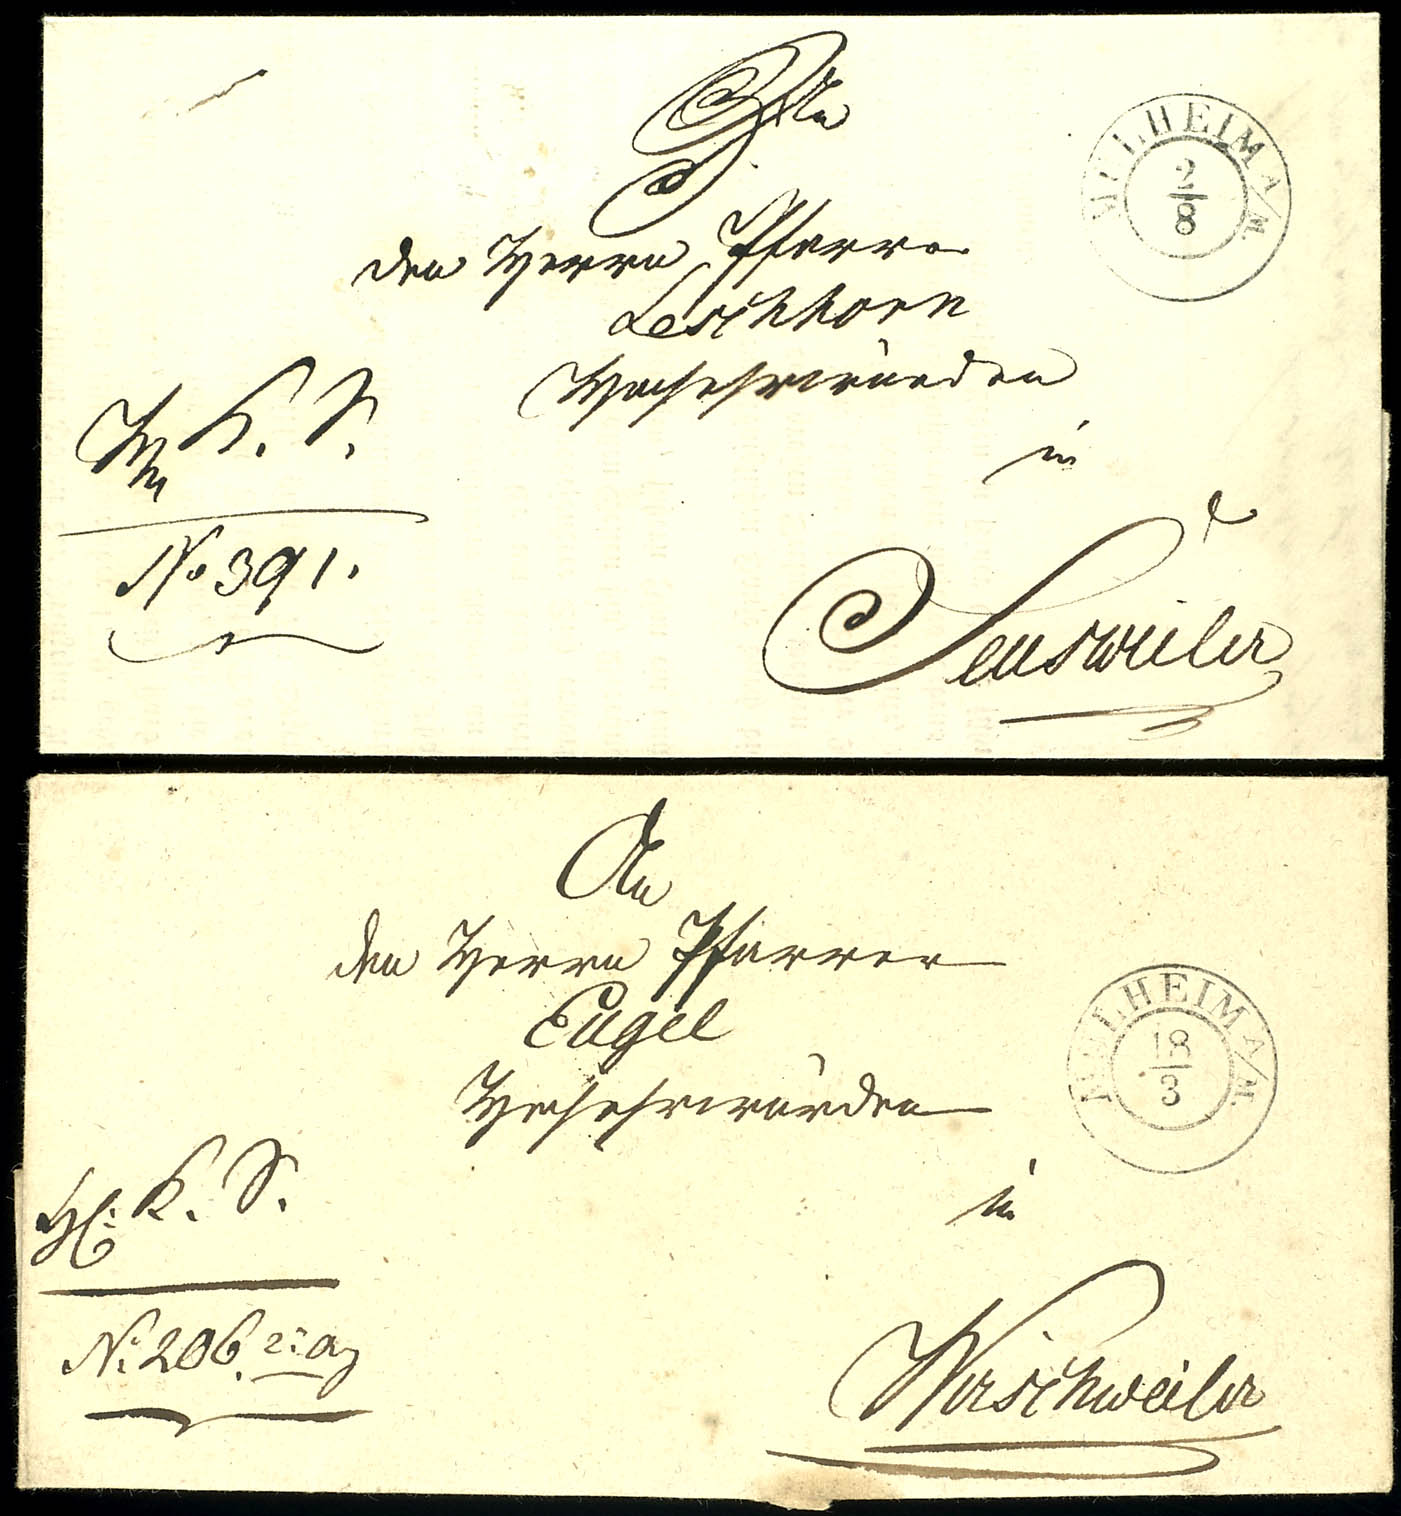 An
den Herrn Pfarrer
Leschhorn
Hochehrwürden
in
Sensweiler
K. S.
No 391.
MÜLHEIM A/M.
2/8
An
den Herrn Pfarrer
Engel
Hochehrwürden
in
Wirschweiler
K. S.
No 206.
MÜLHEIM A/M.
18/3